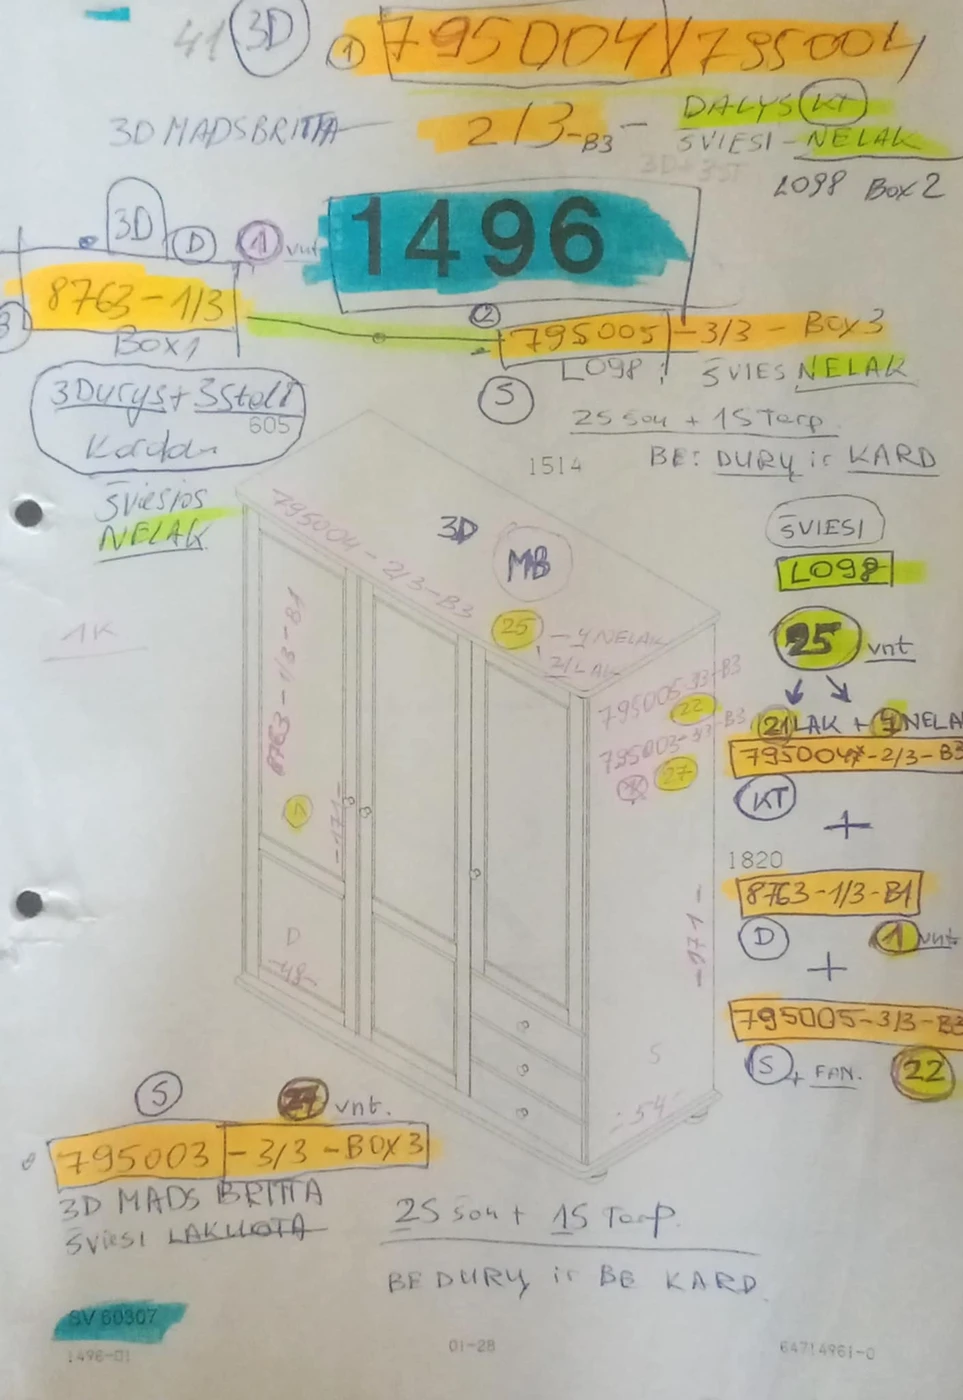 41 3D 1 795004/795004
3D MADSBRITTA — 2/3-B3 — DALYS KT
SVIESI - NELAK
L098 Box 2
3D D 1 vnt 1496
8763-1/3 2 795005 - 3/3 - BOX3
BOX1 L098; ŠVIES NELAK
3Durys + 3Stalč S
605 2S šon + 1S Tarp.
1514 BE: DURŲ ir KARD
šviesios
NELAK
ŠVIESI
L098
25 vnt
21 LAK + 4 NELA
795004*-2/3-B3
KT
+
1820
8763-1/3-B1
D 1 vnt
+
795005-3/3-B3
S + FAN. 22
795004-2/3-B3
3D MB
25 - 4 NELAK
21 LAK
1K
8763-1/3-B1
795005-33-B3
22
795003-3/3-B3
27
-171-
-171-
D
-48-
S
-54-
S 27 vnt.
795003 - 3/3 - BOX3
3D MADS BRITTA
šviesi LAKUOTA
2S šon + 1S Tarp.
BE DURŲ ir BE KARD.
SV 60307
1496-01 01-28 64714961-0